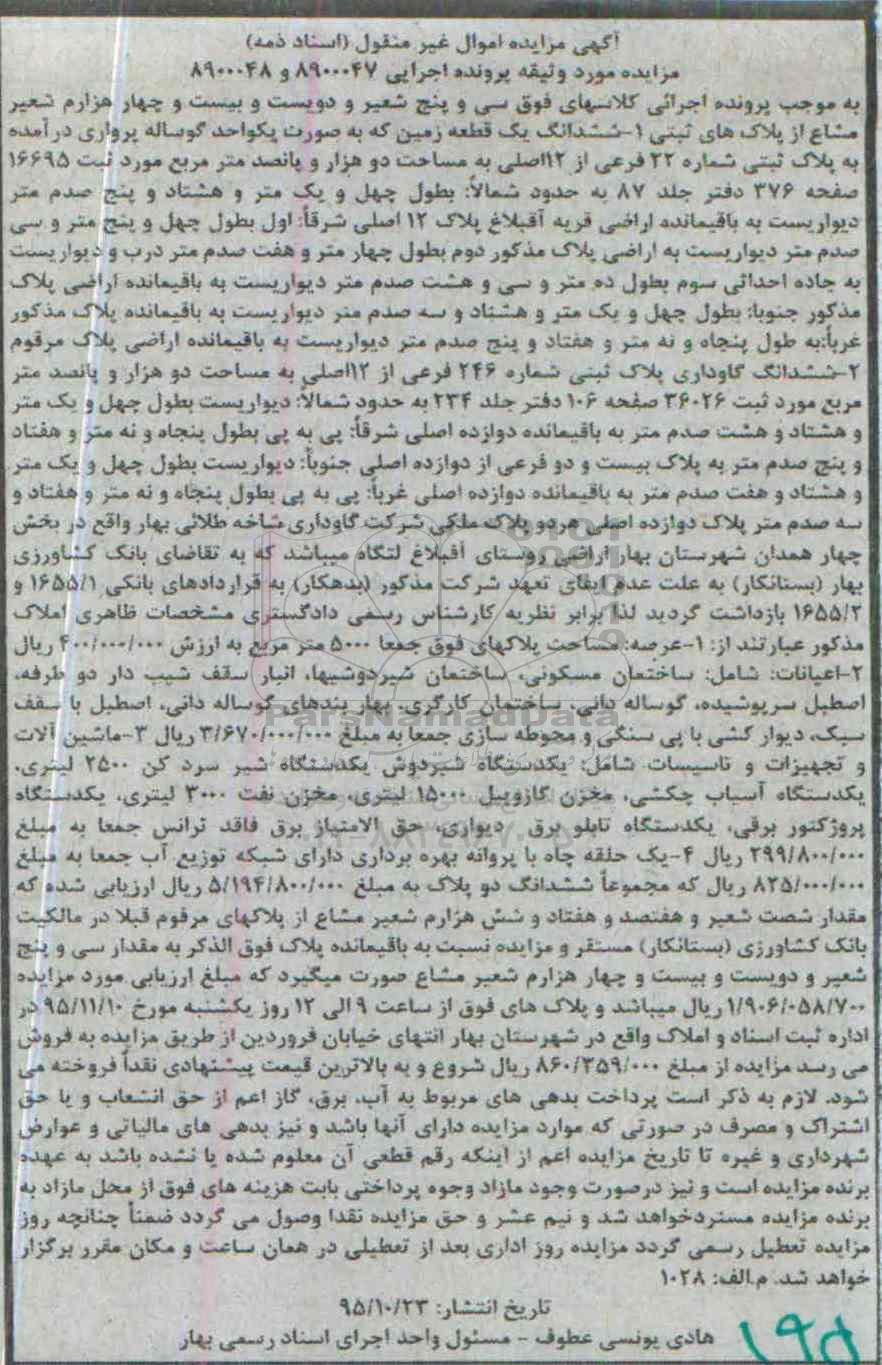 آگهی مزایده اموال غیر منقول (اسناد ذمه)
مزایده مورد وثیقه پرونده اجرایی ۸۹۰۰۰۴۷ و ۸۹۰۰۰۴۸
به موجب پرونده اجرائی کلاسهای فوق سی و پنج شعیر و دویست و بیست و چهار هزارم شعیر
مشاع از پلاک های ثبتی ۱-ششدانگ یک قطعه زمین که به صورت یکواحد گوساله پرواری در آمده
به پلاک ثبتی شماره ۲۲ فرعی از ۱۲اصلی به مساحت دو هزار و پانصد متر مربع مورد ثبت ۱۶۶۹۵
صفحه ۳۷۶ دفتر جلد ۸۷ به حدود شمالاً: بطول چهل و یک متر و هشتاد و پنج صدم متر
دیواریست به باقیمانده اراضی قریه آقبلاغ پلاک ۱۲ اصلی شرقاً: اول بطول چهل و پنج متر و سی
صدم متر دیواریست به اراضی پلاک مذکور دوم بطول چهار متر و هفت صدم متر درب و دیواریست
به جاده احداثی سوم بطول ده متر و سی و هشت صدم متر دیواریست به باقیمانده اراضی پلاک
مذکور جنوبا: بطول چهل و یک متر و هشتاد و سه صدم متر دیواریست به باقیمانده پلاک مذکور
غرباً:به طول پنجاه و نه متر و هفتاد و پنج صدم متر دیواریست به باقیمانده اراضی پلاک مرقوم
۲-ششدانگ گاوداری پلاک ثبتی شماره ۲۴۶ فرعی از ۱۲اصلی به مساحت دو هزار و پانصد متر
مربع مورد ثبت ۳۶۰۲۶ صفحه ۱۰۶ دفتر جلد ۲۳۴ به حدود شمالاً: دیواریست بطول چهل و یک متر
و هشتاد و هشت صدم متر به باقیمانده دوازده اصلی شرقاً: پی به پی بطول پنجاه و نه متر و هفتاد
و پنج صدم متر به پلاک بیست و دو فرعی از دوازده اصلی جنوباً: دیواریست بطول چهل و یک متر
و هشتاد و هفت صدم متر به باقیمانده دوازده اصلی غرباً: پی به پی بطول پنجاه و نه متر و هفتاد و
سه صدم متر پلاک دوازده اصلی هردو پلاک ملکی شرکت گاوداری شاخه طلائی بهار واقع در بخش
چهار همدان شهرستان بهار اراضی روستای آقبلاغ لتگاه میباشد که به تقاضای بانک کشاورزی
بهار (بستانکار) به علت عدم ایفای تعهد شرکت مذکور (بدهکار) به قراردادهای بانکی ۱۶۵۵/۱ و
۱۶۵۵/۲ بازداشت گردید لذا برابر نظریه کارشناس رسمی دادگستری مشخصات ظاهری املاک
مذکور عبارتند از: ۱-عرصه: مساحت پلاکهای فوق جمعا ۵۰۰۰ متر مربع به ارزش ۴۰۰/۰۰۰/۰۰۰ ریال
۲-اعیانات: شامل: ساختمان مسکونی، ساختمان شیردوشیها، انبار سقف شیب دار دو طرفه،
اصطبل سرپوشیده، گوساله دانی، ساختمان کارگری، بهار بندهای گوساله دانی، اصطبل با سقف
سبک، دیوار کشی با پی سنگی و محوطه سازی جمعا به مبلغ ۳/۶۷۰/۰۰۰/۰۰۰ ریال ۳-ماشین آلات
و تجهیزات و تاسیسات شامل: یکدستگاه شیردوش یکدستگاه شیر سرد کن ۲۵۰۰ لیتری،
یکدستگاه آسیاب چکشی، مخزن گازوییل ۱۵۰۰۰ لیتری، مخزن نفت ۳۰۰۰ لیتری، یکدستگاه
پروژکتور برقی، یکدستگاه تابلو برق دیواری، حق الامتیاز برق فاقد ترانس جمعا به مبلغ
۲۹۹/۸۰۰/۰۰۰ ریال ۴-یک حلقه چاه با پروانه بهره برداری دارای شبکه توزیع آب جمعا به مبلغ
۸۲۵/۰۰۰/۰۰۰ ریال که مجموعاً ششدانگ دو پلاک به مبلغ ۵/۱۹۴/۸۰۰/۰۰۰ ریال ارزیابی شده که
مقدار شصت شعیر و هفتصد و هفتاد و شش هزارم شعیر مشاع از پلاکهای مرقوم قبلا در مالکیت
بانک کشاورزی (بستانکار) مستقر و مزایده نسبت به باقیمانده پلاک فوق الذکر به مقدار سی و پنج
شعیر و دویست و بیست و چهار هزارم شعیر مشاع صورت میگیرد که مبلغ ارزیابی مورد مزایده
۱/۹۰۶/۰۵۸/۷۰۰ ریال میباشد و پلاک های فوق از ساعت ۹ الی ۱۲ روز یکشنبه مورخ ۹۵/۱۱/۱۰ در
اداره ثبت اسناد و املاک واقع در شهرستان بهار انتهای خیابان فروردین از طریق مزایده به فروش
می رسد مزایده از مبلغ ۸۶۰/۳۵۹/۰۰۰ ریال شروع و به بالاترین قیمت پیشنهادی نقداً فروخته می
شود. لازم به ذکر است پرداخت بدهی های مربوط به آب، برق، گاز اعم از حق انشعاب و یا حق
اشتراک و مصرف در صورتی که موارد مزایده دارای آنها باشد و نیز بدهی های مالیاتی و عوارض
شهرداری و غیره تا تاریخ مزایده اعم از اینکه رقم قطعی آن معلوم شده یا نشده باشد به عهده
برنده مزایده است و نیز درصورت وجود مازاد وجوه پرداختی بابت هزینه های فوق از محل مازاد به
برنده مزایده مسترد خواهد شد و نیم عشر و حق مزایده نقدا وصول می گردد ضمناً چنانچه روز
مزایده تعطیل رسمی گردد مزایده روز اداری بعد از تعطیلی در همان ساعت و مکان مقرر برگزار
خواهد شد. م.الف: ۱۰۲۸
تاریخ انتشار: ۹۵/۱۰/۲۳
هادی یونسی عطوف - مسئول واحد اجرای اسناد رسمی بهار
ParsNamadData